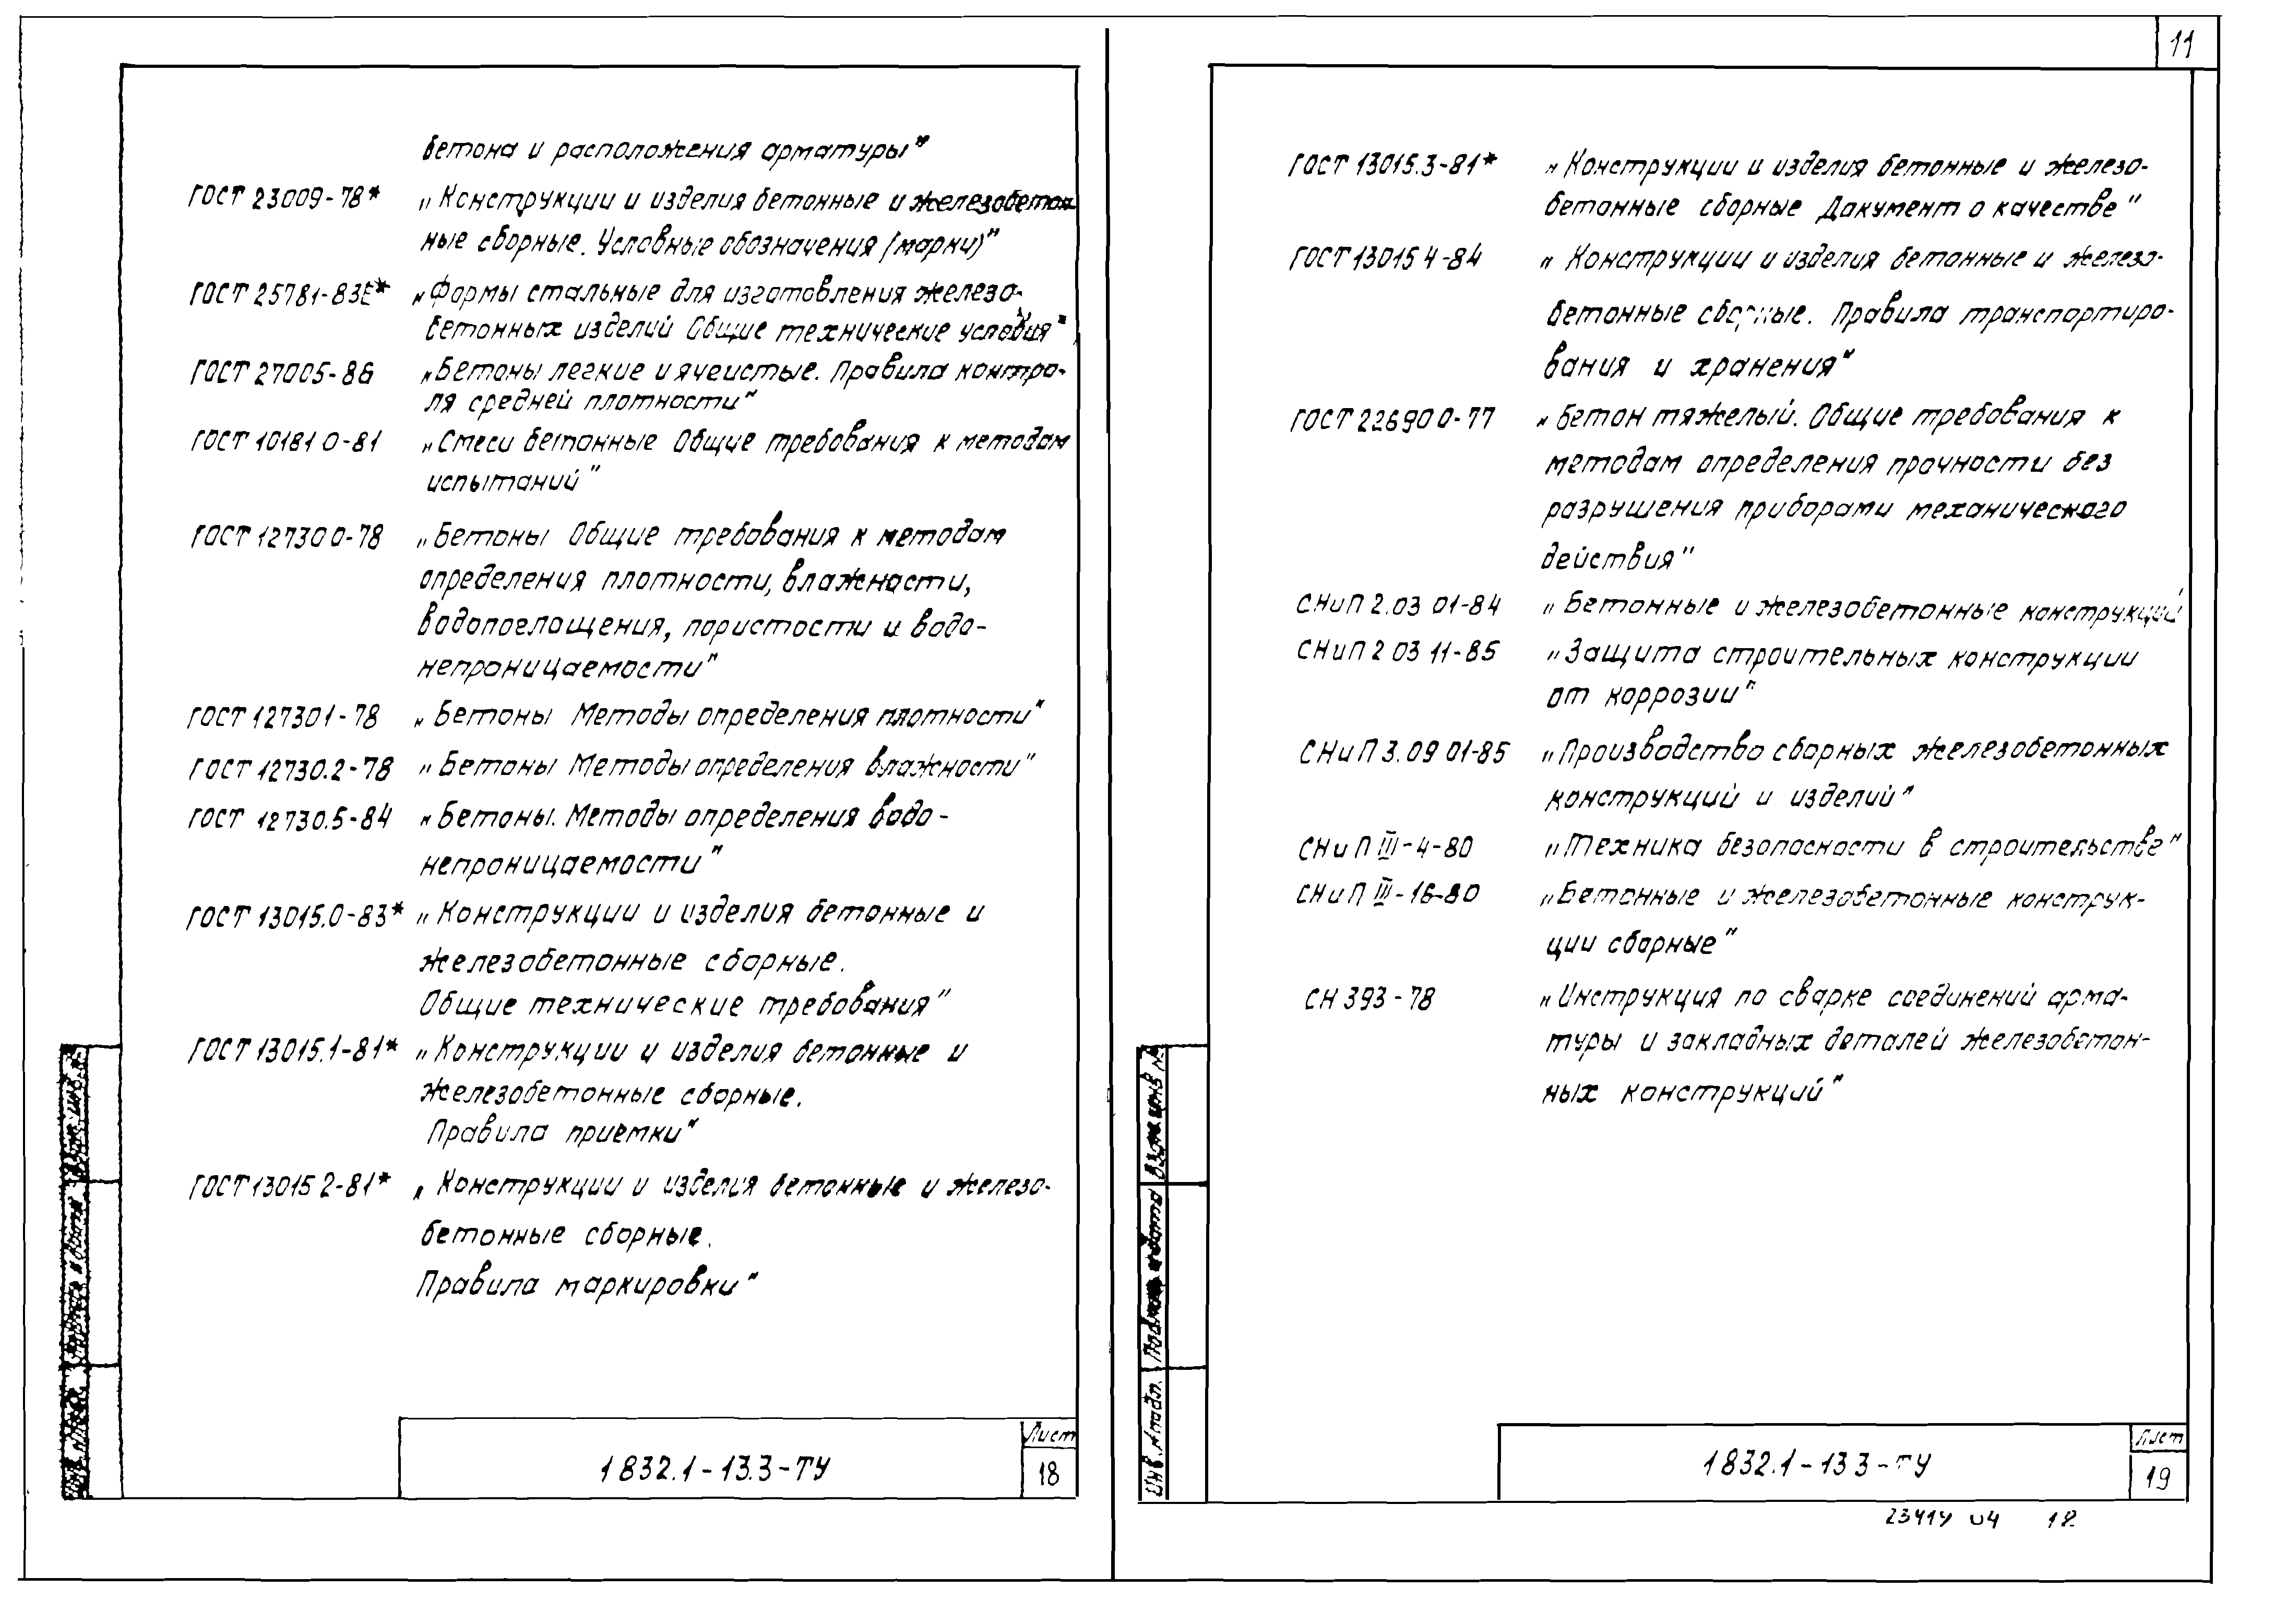 11
бетона и расположения арматуры"
ГОСТ 23009-78* „Конструкции и изделия бетонные и железобетон
ные сборные. Условные обозначения (марки)"
ГОСТ 25781-83Е* „Формы стальные для изготовления железо-
бетонных изделий Общие технические условия"
ГОСТ 27005-86 „Бетоны легкие и ячеистые. Правила контро-
ля средней плотности"
ГОСТ 10181 0-81 „Смеси бетонные Общие требования к методам
испытаний"
ГОСТ 12730 0-78 „Бетоны Общие требования к методам
определения плотности, влажности,
водопоглощения, пористости и водо-
непроницаемости"
ГОСТ 12730 1-78 „Бетоны Методы определения плотности"
ГОСТ 12730.2-78 „Бетоны Методы определения влажности"
ГОСТ 12730.5-84 „Бетоны. Методы определения водо-
непроницаемости"
ГОСТ 13015.0-83* „Конструкции и изделия бетонные и
железобетонные сборные.
Общие технические требования"
ГОСТ 13015.1-81* „Конструкции и изделия бетонные и
железобетонные сборные.
Правила приемки"
ГОСТ 13015 2-81* „Конструкции и изделия бетонные и железо-
бетонные сборные.
Правила маркировки"
1 832.1-13.3-ТУ
Лист
18
ГОСТ 13015.3-81* „Конструкции и изделия бетонные и железо-
бетонные сборные Документ о качестве"
ГОСТ 13015 4-84 „Конструкции и изделия бетонные и железо-
бетонные сборные. Правила транспортиро-
вания и хранения"
ГОСТ 22690 0-77 „Бетон тяжелый. Общие требования к
методам определения прочности без
разрушения приборами механического
действия"
СНиП 2.03 01-84 „Бетонные и железобетонные конструкции
СНиП 2 03 11-85 „Защита строительных конструкции
от коррозии"
СНиП 3.09 01-85 „Производство сборных железобетонных
конструкций и изделий"
СНиП III-4-80 „Техника безопасности в строительстве"
СНиП III-16-80 „Бетонные и железобетонные конструк-
ции сборные"
СН 393-78 „Инструкция по сварке соединений арма-
туры и закладных деталей железобетон-
ных конструкций"
Инв. №подл.
Подпись и дата
Взам инв №
1 832.1-13 3-ТУ
Лист
19
23414 04 12